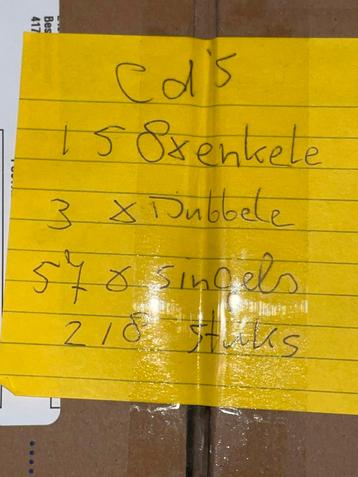 Bes
417
Cd's
158x enkele
3 x Dubbele
57 x singels
218 stuks